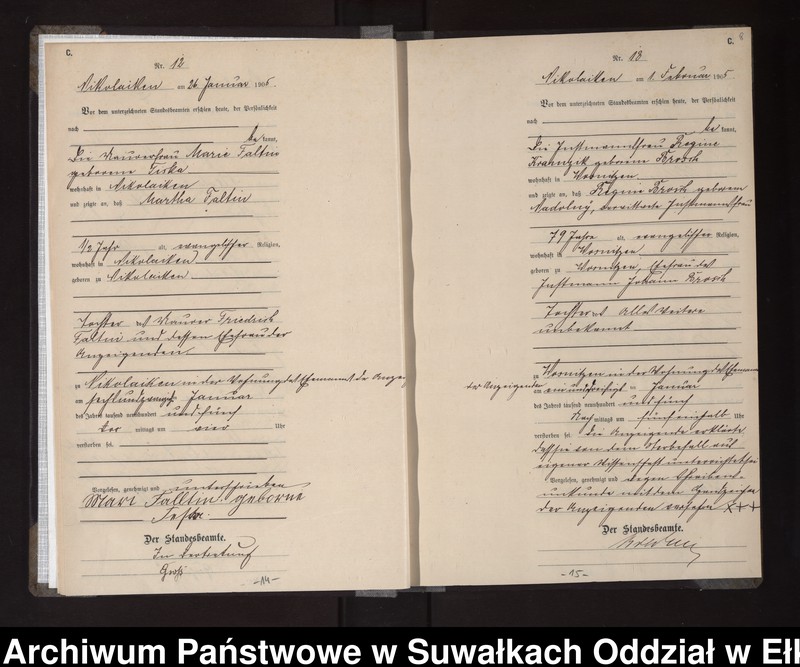 C.
Nr. 12
Nikolaiken am 26. Januar 1905.
Vor dem unterzeichneten Standesbeamten erschien heute, der Persönlichkeit
nach
be kannt,
die Maurerfrau Marie Taltin
geborene Tiska
wohnhaft in Nikolaiken
und zeigte an, daß Martha Taltin
1/2 Jahr alt, evangelischer Religion,
wohnhaft in Nikolaiken
geboren zu Nikolaiken
Tochter des Maurer Friedrich
Taltin und dessen Ehefrau der
Anzeigenden
zu Nikolaiken in der Wohnung des Ehemannes der Anzei
am sechsundzwanzigsten Januar
des Jahres tausend neunhundert und fünf
Vor mittags um vier Uhr
verstorben sei.
Vorgelesen, genehmigt und unterschrieben
Mari Talltin geborne
Der Standesbeamte.
In Vertretung
Groß
-14-
C. 8
Nr. 13
Nikolaiken am 1. Februar 1905
Vor dem unterzeichneten Standesbeamten erschien heute, der Persönlichkeit
nach
be kannt,
die Instmannsfrau Regine
geborene Brosch
wohnhaft in Wosnitzen
und zeigte an, daß Regine Brosch geborene
Nadolny, verwittwete Instmannsfrau
79 Jahre alt, evangelischer Religion,
wohnhaft in Wosnitzen
geboren zu Wosnitzen, Ehefrau des
Instmann Johann Brosch
Tochter des Alles weitere
unbekannt
zu Wosnitzen in der Wohnung des Ehemannes
der Anzeigenden
am einunddreißigsten Januar
des Jahres tausend neunhundert und fünf
Nach mittags um fünf einhalb Uhr
verstorben sei. Die Anzeigende erklärte
daß sie von dem Sterbefall aus
eigener Wissenschaft unterrichtet sei
Vorgelesen, genehmigt und wegen Schreibens
unkunde mit dem Handzeichen
der Anzeigenden versehen +++
Der Standesbeamte.
-15-
Archiwum Państwowe w Suwałkach Oddział w Ełk